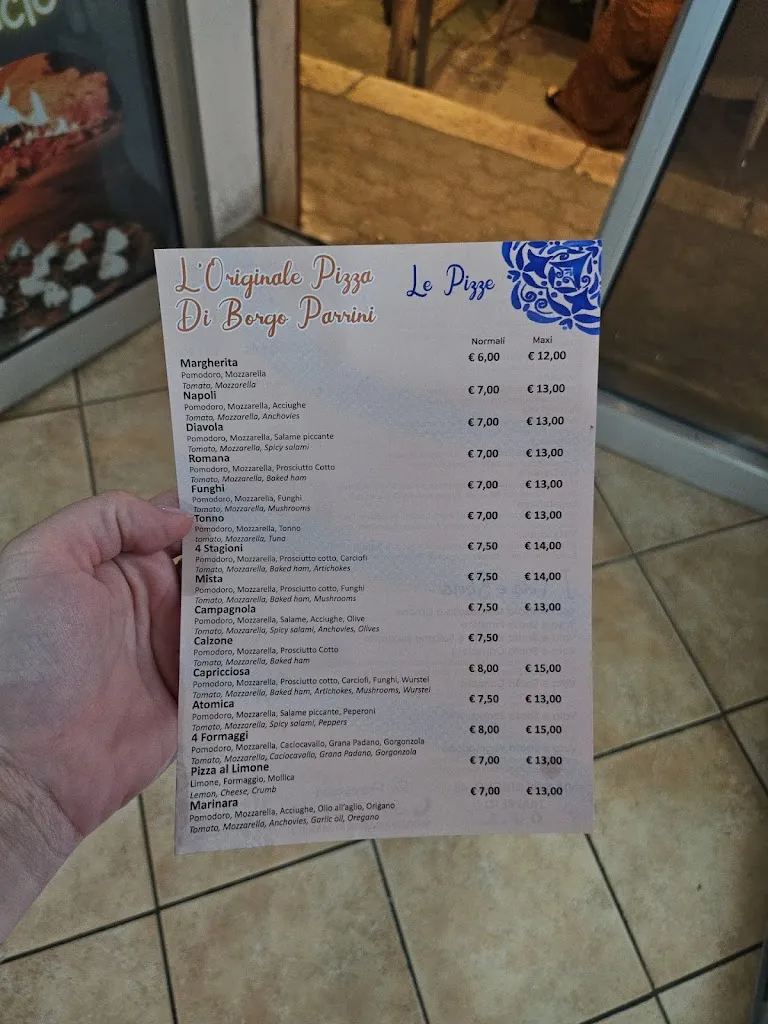 L'Originale Pizza
Di Borgo Parrini
Le Pizze
Normali Maxi
Margherita € 6,00 € 12,00
Pomodoro, Mozzarella
Tomato, Mozzarella
Napoli € 7,00 € 13,00
Pomodoro, Mozzarella, Acciughe
Tomato, Mozzarella, Anchovies
Diavola € 7,00 € 13,00
Pomodoro, Mozzarella, Salame piccante
Tomato, Mozzarella, Spicy salami
Romana € 7,00 € 13,00
Pomodoro, Mozzarella, Prosciutto Cotto
Tomato, Mozzarella, Baked ham
Funghi € 7,00 € 13,00
Pomodoro, Mozzarella, Funghi
Tomato, Mozzarella, Mushrooms
Tonno € 7,00 € 13,00
Pomodoro, Mozzarella, Tonno
tomato, Mozzarella, Tuna
4 Stagioni € 7,50 € 14,00
Pomodoro, Mozzarella, Prosciutto cotto, Carciofi
Tomato, Mozzarella, Baked ham, Artichokes
Mista € 7,50 € 14,00
Pomodoro, Mozzarella, Prosciutto cotto, Funghi
Tomato, Mozzarella, Baked ham, Mushrooms
Campagnola € 7,50 € 13,00
Pomodoro, Mozzarella, Salame, Acciughe, Olive
Tomato, Mozzarella, Spicy salami, Anchovies, Olives
Calzone € 7,50
Pomodoro, Mozzarella, Prosciutto Cotto
Tomato, Mozzarella, Baked ham
Capricciosa € 8,00 € 15,00
Pomodoro, Mozzarella, Prosciutto cotto, Carciofi, Funghi, Wurstel
Tomato, Mozzarella, Baked ham, Artichokes, Mushrooms, Wurstel
Atomica € 7,50 € 13,00
Pomodoro, Mozzarella, Salame piccante, Peperoni
Tomato, Mozzarella, Spicy salami, Peppers
4 Formaggi € 8,00 € 15,00
Pomodoro, Mozzarella, Caciocavallo, Grana Padano, Gorgonzola
Tomato, Mozzarella, Caciocavallo, Grana Padano, Gorgonzola
Pizza al Limone € 7,00 € 13,00
Limone, Formaggio, Mollica
Lemon, Cheese, Crumb
Marinara € 7,00 € 13,00
Pomodoro, Mozzarella, Acciughe, Olio all'aglio, Origano
Tomato, Mozzarella, Anchovies, Garlic oil, Oregano